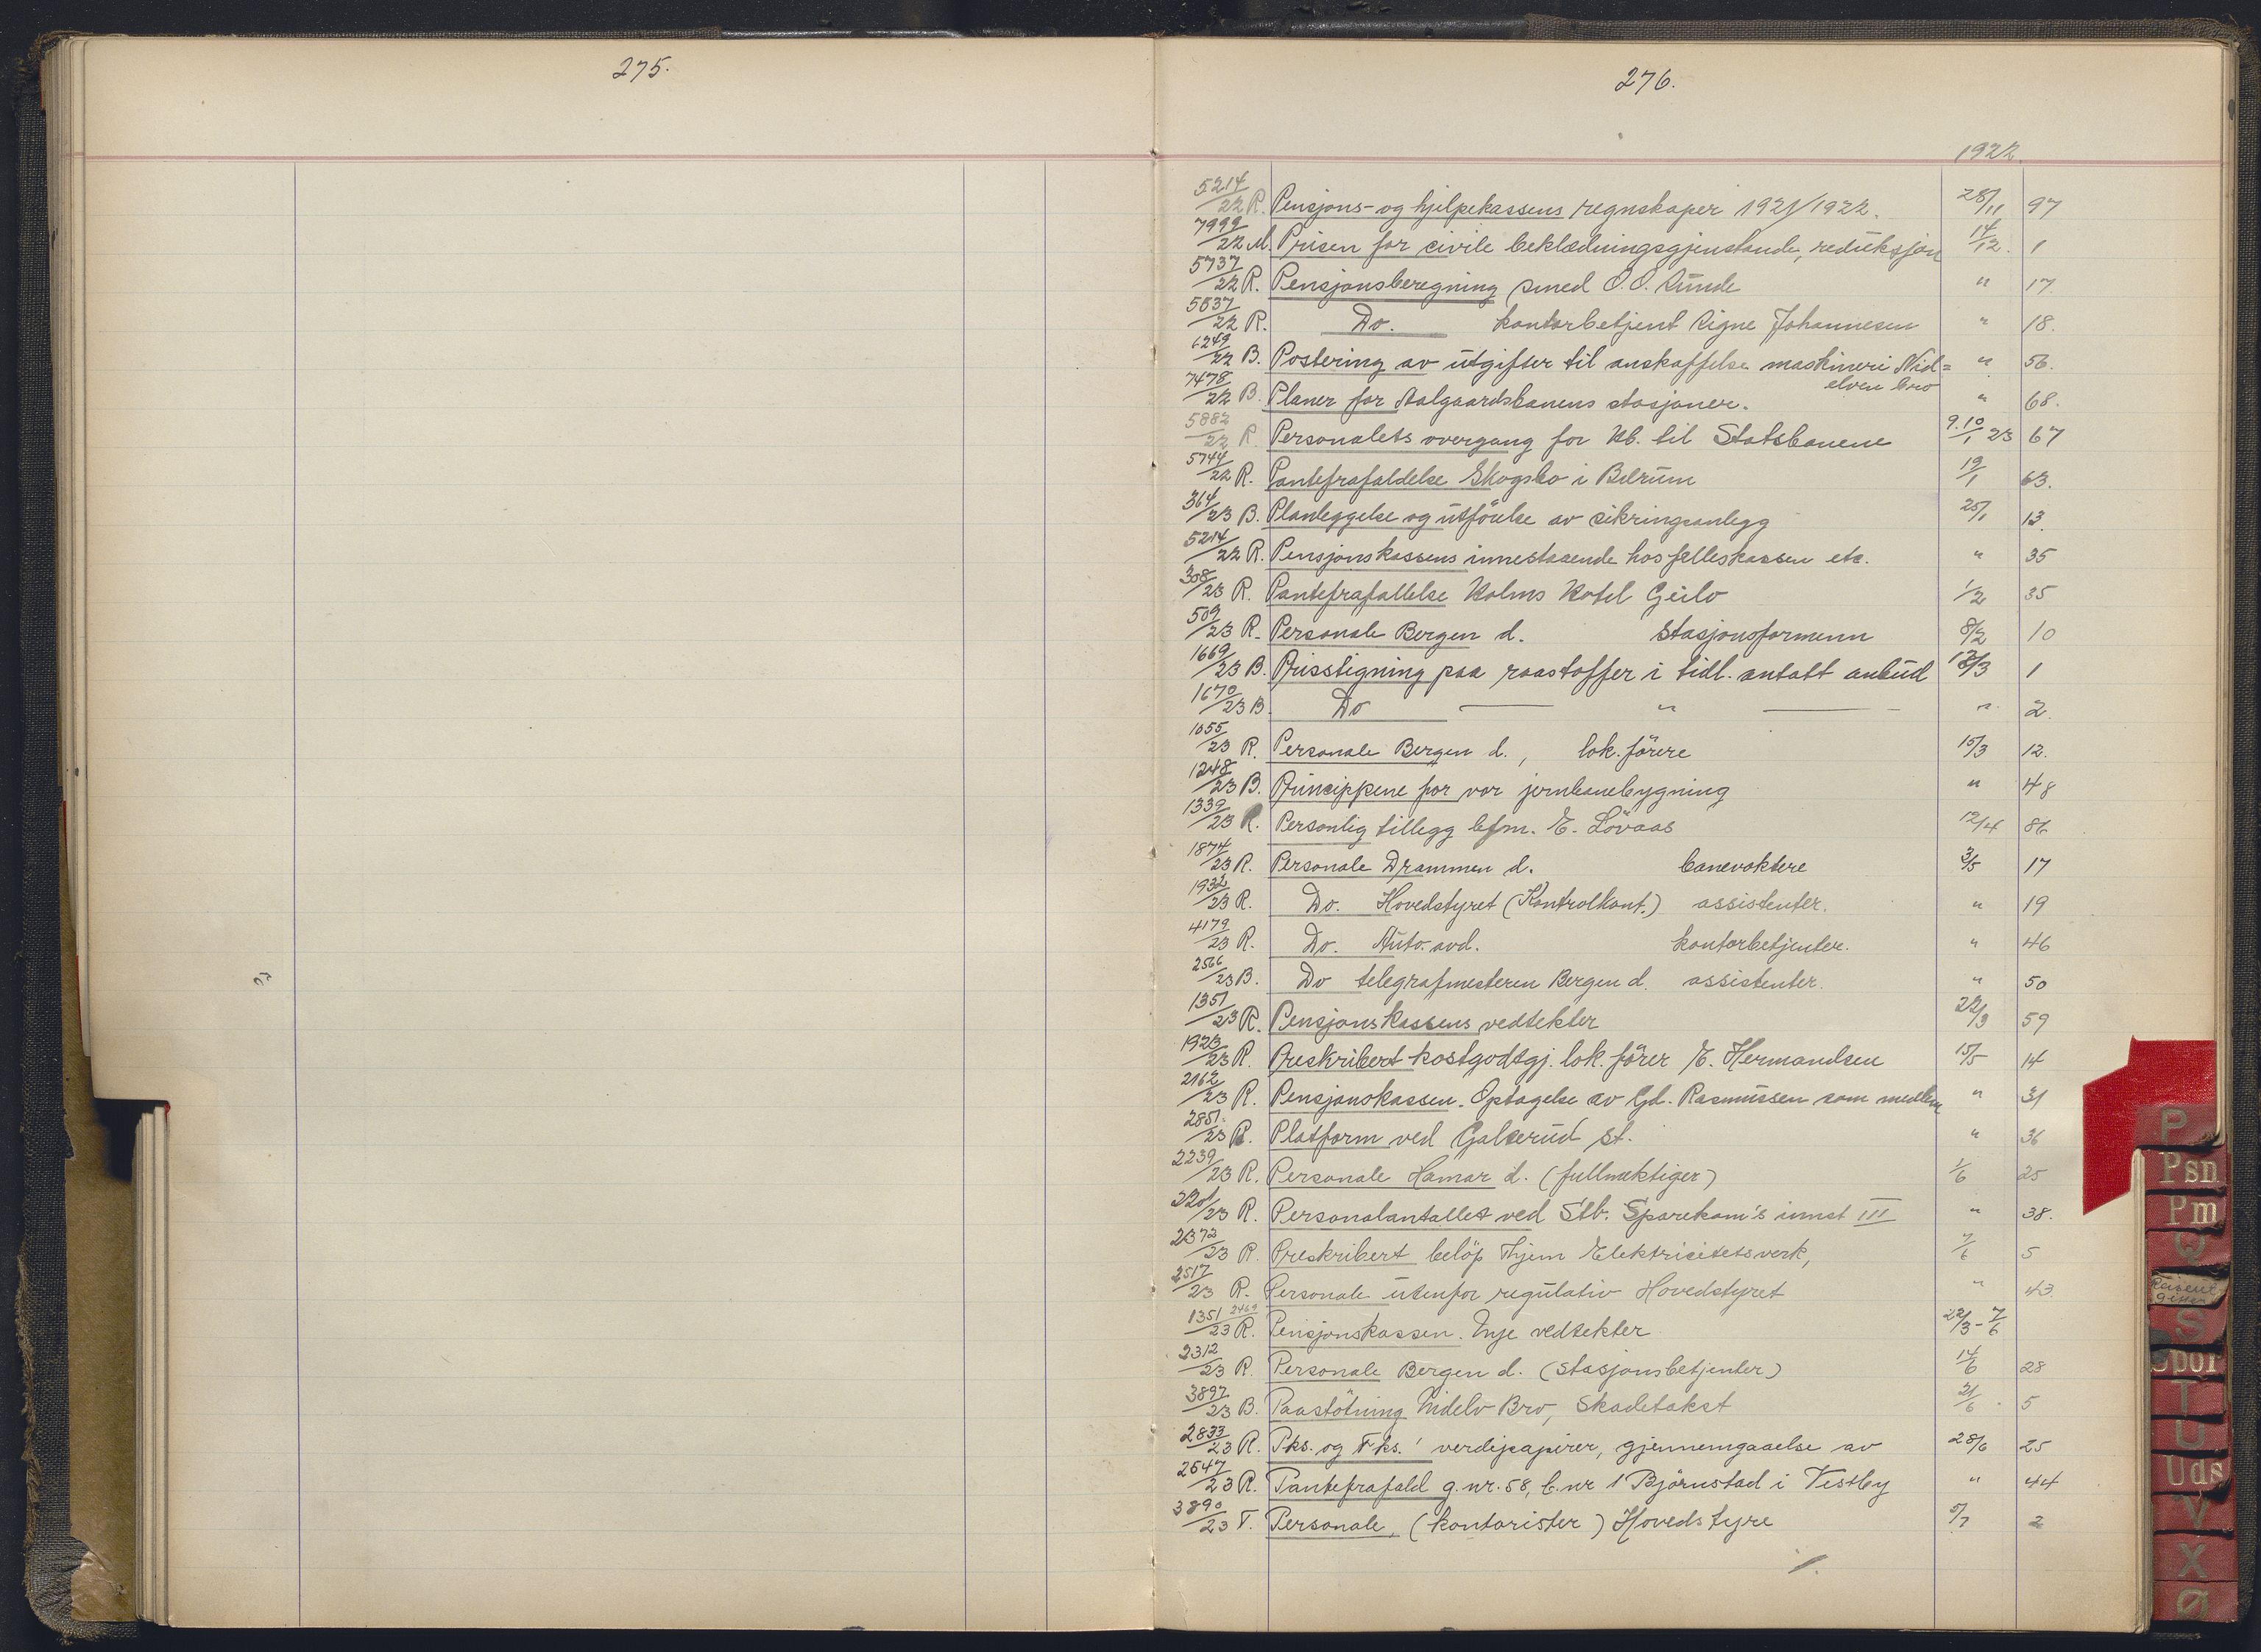 275.
276.
1922.
5214/22 R. Pensjons- og hjelpekassens regnskaper 1921/1922. 28/11 97
7999/22 M. Prisen for civile beklædningsgjenstande, reduksjon 14/12. 1
5737/22 R. Pensjonsberegning smed O. O. Lunde " 17.
5837/22 R. Do. kontorbetjent Signe Johannesen " 18.
6249/22 B. Postering av utgifter til anskaffelse maskineri Nid= " 56.
elven bro
7478/22 B. Planer for Aalgaardsbanens stasjoner. " 68.
5882/22 R. Personalets overgang for Hb. til Statsbanene 9.10/1 23 67
5744/22 R. Pantefrafaldelse Skogsbo i Bærum 19/1 63.
364/23 B. Planleggelse og utförelse av sikringsanlegg 25/1 13.
5214/22 R. Pensjonskassens innestaaende hos felleskassen etc. " 35
308/23 R. Pantefrafallelse Holms Hotel Geilo 1/2 35
509/23 R. Personale Bergen d. Stasjonsformenn 8/2 10
1669/23 B. Prisstigning paa raastoffer i tidl. antatt anbud 1
1670/23 B. Do " " 2.
1055/23 R. Personale Bergen d., lok. förere 15/3 12.
1248/23 B. Princippene for vor jernbanebygning " 48
1339/23 R. Personlig tillegg bfm. E. Lövaas 12/4 86
1874/23 R. Personale Drammen d. banevoktere 3/5 17
1932/23 R. Do. Hovedstyret (Kontrolkont.) assistenter. " 19
4179/23 R. Do. Auto. avd. kontorbetjenter. " 46
2566/23 B. Do telegrafmesteren Bergen d. assistenter. " 50
1351/23 R. Pensjonskassens vedtekter 22/3 59
1923/23 R. Preskribert kostgodtgj. lok. förer E. Hermandsen 15/5 14
2162/23 R. Pensjonskassen. Optagelse av Gd. Rasmussen som medlem " 31
2851./23 R. Platform ved Galterud st. " 36
2239/23 R. Personale Hamar d. (fullmektiger) 1/6 25
2201/23 R. Personalantallet ved Stb. Sparekom's innst III " 38.
2372/23 R. Preskribert belöp Thjem Elektricitetsverk, 7/6 5
2517/23 R. Personale utenfor regulativ Hovedstyret " 43.
1351 2469/23 R. Pensjonskassen. Nye vedtekter 22/3 - 7/6
2312/23 R. Personale Bergen d. (Stasjonsbetjenter) 14/6 28
3897/23 B. Paastötning Nidelv Bro, Skadetakst 21/6. 5
2833/23 R. Pks. og Fks.' verdipapirer, gjennemgaaelse av 28/6 25
2647/23 R. Pantefrafald g.nr. 58, b.nr 1 Björnstad i Vestby " 44
3890/23 T. Personale, (kontorister) Hovedstyre 5/7 2
P
Psn
Pm
Q
S
Spor
T
U
Uds
V
X
Ø